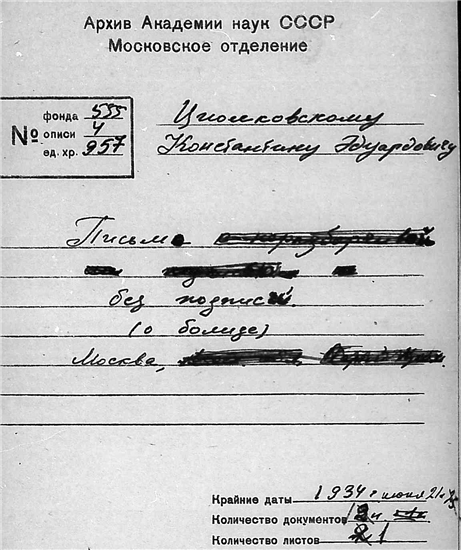 Архив Академии наук СССР
Московское отделение
№
фонда 555
описи 4
ед. хр. 957
Циолковскому
Константину Эдуардовичу
Письмо
без подписи
(о болиде)
Москва,
Крайние даты 1934 г июня 21
Количество документов
Количество листов 1